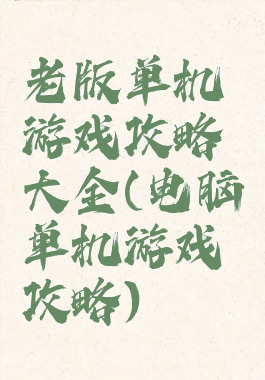 老版单机
游戏攻略
大全(电脑
单机游戏
攻略)